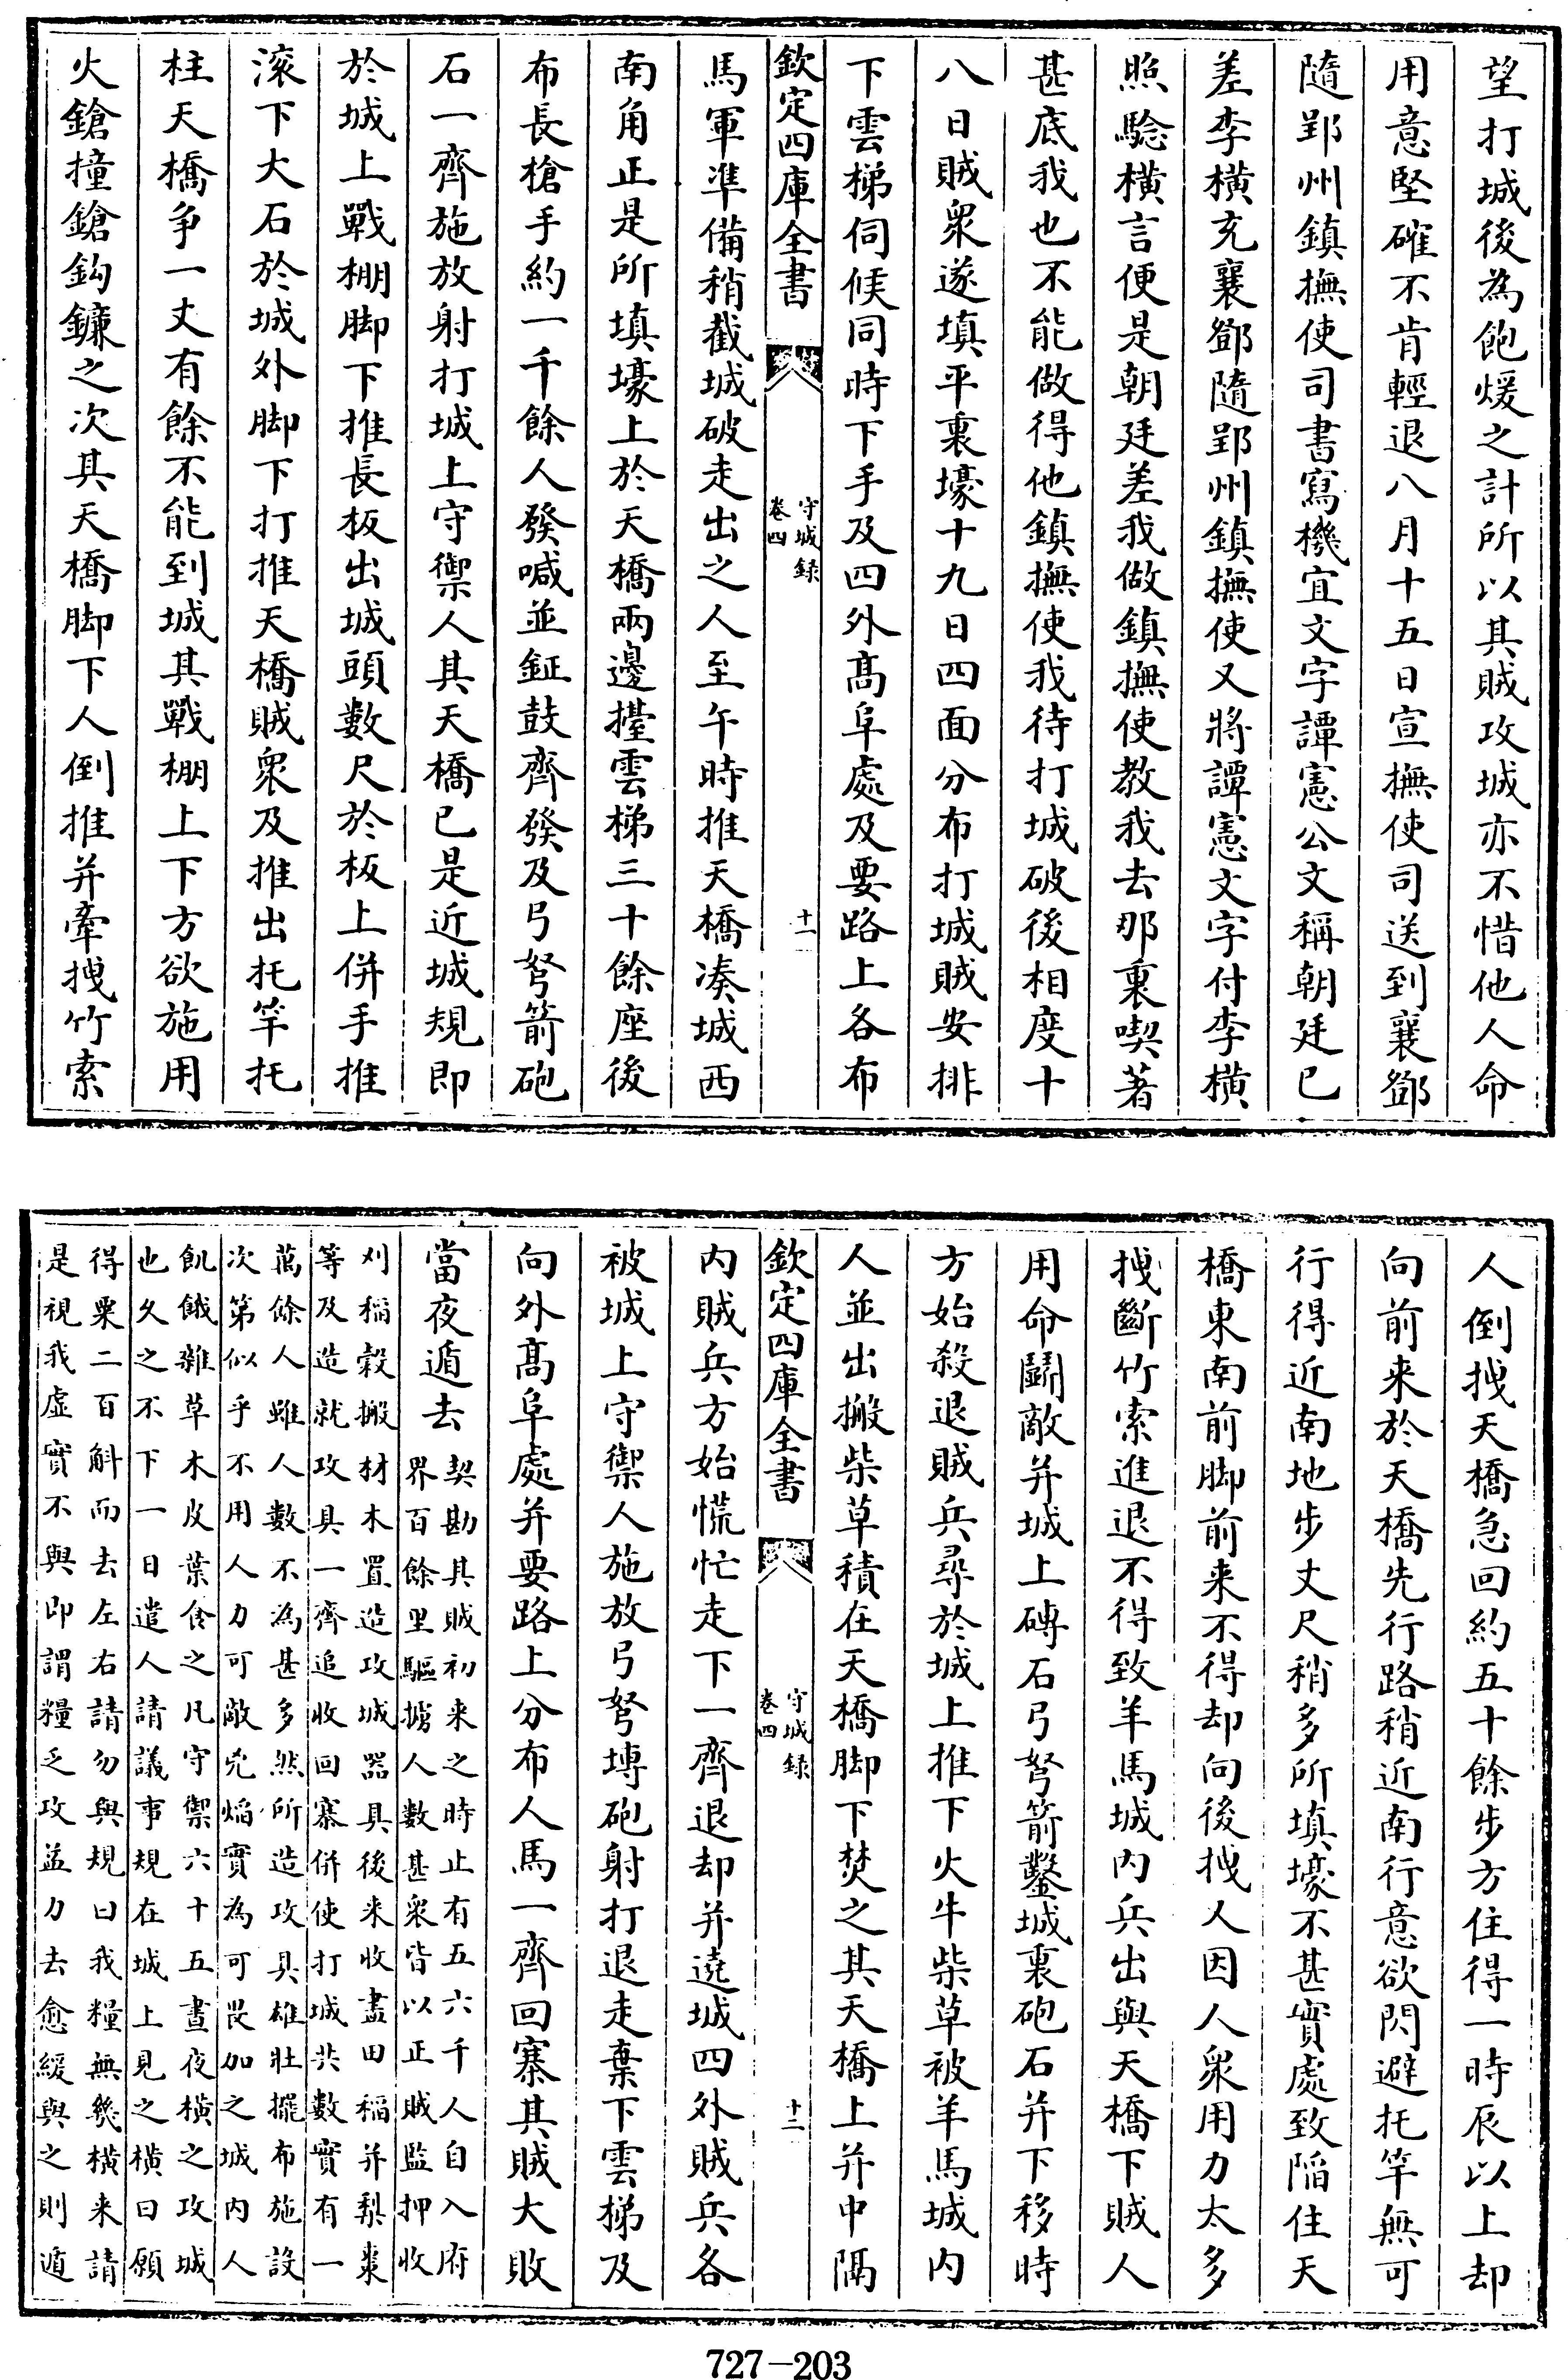 望打城後為飽煖之計所以其賊攻城亦不惜他人命
用意堅確不肯輕退八月十五日宣撫使司送到襄鄧
隨郢州鎮撫使司書寫機宜文字譚憲公文稱朝廷已
差李橫充襄鄧隨郢州鎮撫使又將譚憲文字付李橫
照騐橫言便是朝廷差我做鎮撫使教我去那裏喫著
甚底我也不能做得他鎮撫使我待打城破後相度十
八日賊衆遂填平裏壕十九日四面分布打城賊安排
下雲梯伺候同時下手及四外髙阜處及要路上各布
欽定四庫全書
守城録
卷四
十一
馬軍準備稍截城破走出之人至午時推天橋凑城西
南角正是所填壕上於天橋兩邊擡雲梯三十餘座後
布長槍手約一千餘人發喊並鉦鼓齊發及弓弩箭砲
石一齊施放射打城上守禦人其天橋已是近城規即
於城上戰棚脚下推長板出城頭數尺於板上併手推
滚下大石於城外脚下打推天橋賊衆及推出托竿托
柱天橋争一丈有餘不能到城其戰棚上下方欲施用
火鎗撞鎗鈎鐮之次其天橋脚下人倒推并牽拽竹索
人倒拽天橋急回約五十餘步方住得一時辰以上却
向前来於天橋先行路稍近南行意欲閃避托竿無可
行得近南地步丈尺稍多所填壕不甚實處致陷住天
橋東南前脚前来不得却向後拽人因人衆用力太多
拽斷竹索進退不得致羊馬城内兵出與天橋下賊人
用命鬭敵并城上磚石弓弩箭鑿城裏砲石并下移時
方始殺退賊兵尋於城上推下火牛柴草被羊馬城内
人並出搬柴草積在天橋脚下焚之其天橋上并中隔
欽定四庫全書
守城録
卷四
十二
内賊兵方始慌忙走下一齊退却并遶城四外賊兵各
被城上守禦人施放弓弩塼砲射打退走棄下雲梯及
向外髙阜處并要路上分布人馬一齊回寨其賊大敗
當夜遁去
契勘其賊初来之時止有五六千人自入府
界百餘里驅擄人數甚衆皆以正賊監押收
刈稻穀搬材木置造攻城器具後来收盡田稻并梨棗
等及造就攻具一齊追收回寨併使打城共數實有一
萬餘人雖人數不為甚多然所造攻具雄壯擺布施設
次第似乎不用人力可敵兇焰實為可畏加之城内人
飢餓雜草木皮葉食之凡守禦六十五晝夜橫之攻城
也久之不下一日遣人請議事規在城上見之橫曰願
得粟二百斛而去左右請勿與規曰我糧無幾橫来請
是視我虛實不與即謂糧乏攻益力去愈緩與之則遁
727-203